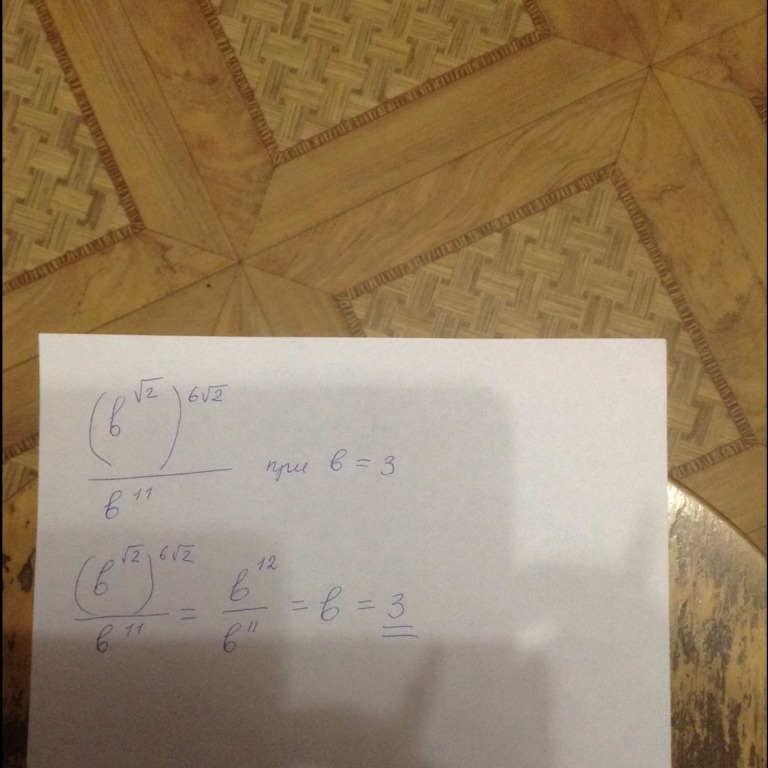 (b^√2)^6√2 / b^11 при b = 3
(b^√2)^6√2 / b^11 = b^12 / b^11 = b = 3